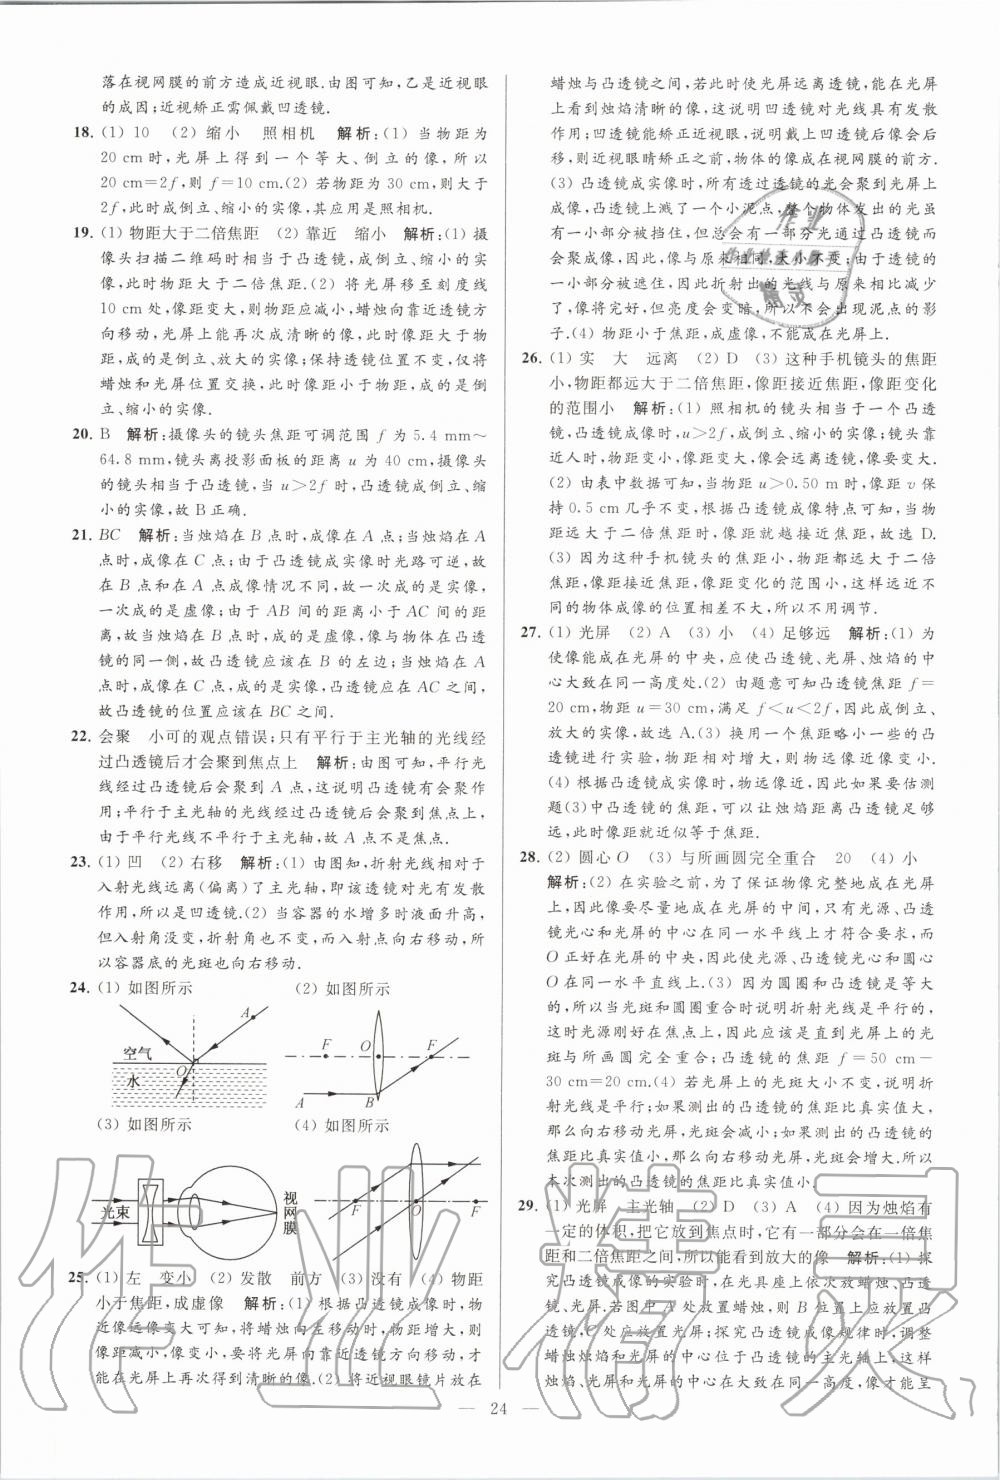 落在视网膜的前方造成近视眼.由图可知,乙是近视眼
的成因;近视矫正需佩戴凹透镜.
18. (1) 10 (2) 缩小 照相机 解析:(1) 当物距为
20 cm时,光屏上得到一个等大、倒立的像,所以
20 cm=2f,则 f=10 cm.(2) 若物距为30 cm,则大于
2f,此时成倒立、缩小的实像,其应用是照相机.
19. (1) 物距大于二倍焦距 (2) 靠近 缩小 解析:(1) 摄
像头扫描二维码时相当于凸透镜,成倒立、缩小的实
像,此时物距大于二倍焦距.(2) 将光屏移至刻度线
10 cm处,像距变大,则物距应减小,蜡烛向靠近透镜方
向移动,光屏上能再次成清晰的像,此时像距大于物
距,成的是倒立、放大的实像;保持透镜位置不变,仅将
蜡烛和光屏位置交换,此时像距小于物距,成的是倒
立、缩小的实像.
20. B 解析:摄像头的镜头焦距可调范围 f 为 5.4 mm～
64.8 mm,镜头离投影面板的距离 u 为 40 cm,摄像头
的镜头相当于凸透镜,当 u＞2f 时,凸透镜成倒立、缩
小的实像,故B正确.
21. BC 解析:当烛焰在 B 点时,成像在 A 点;当烛焰在 A
点时,成像在 C 点;由于凸透镜成实像时光路可逆,故
在 B 点和在 A 点成像情况不同,故一次成的是实像,
一次成的是虚像;由于 AB 间的距离小于 AC 间的距
离,故当烛焰在 B 点时,成的是虚像,像与物体在凸透
镜的同一侧,故凸透镜应该在 B 的左边;当烛焰在 A
点时,成像在 C 点,成的是实像,凸透镜应在 AC 之间,
故凸透镜的位置应该在 BC 之间.
22. 会聚 小可的观点错误;只有平行于主光轴的光线经
过凸透镜后才会聚到焦点上 解析:由图可知,平行光
线经过凸透镜后会聚到 A 点,这说明凸透镜有会聚作
用;平行于主光轴的光线经过凸透镜后会聚到焦点上,
由于平行光线不平行于主光轴,故 A 点不是焦点.
23. (1) 凹 (2) 右移 解析:(1) 由图知,折射光线相对于
入射光线远离(偏离)了主光轴,即该透镜对光有发散
作用,所以是凹透镜.(2) 当容器的水增多时液面升高,
但入射角没变,折射角也不变,而入射点向右移动,所
以容器底的光斑也向右移动.
24. (1) 如图所示 (2) 如图所示
A
空气
O
水
F O F
A B
(3) 如图所示 (4) 如图所示
光束
视网膜
F O F
25. (1) 左 变小 (2) 发散 前方 (3) 没有 (4) 物距
小于焦距,成虚像 解析:(1) 根据凸透镜成像时,物
近像远像变大可知,将蜡烛向左移动时,物距增大,则
像距减小,像变小,故需将光屏向靠近透镜方向移动,才
能在光屏上再次得到清晰的像.(2) 将近视眼镜片放在
蜡烛与凸透镜之间,若此时使光屏远离透镜,能在光屏
上看到烛焰清晰的像,这说明凹透镜对光线具有发散
作用;凹透镜能矫正近视眼,说明戴上凹透镜后像会后
移,则近视眼睛矫正之前,物体的像成在视网膜的前方.
(3) 凸透镜成实像时,所有透过透镜的光会聚到光屏上
成像,凸透镜上溅了一个小泥点,整个物体发出的光虽
有一小部分被挡住,但总会有一部分光通过凸透镜而
会聚成像,因此,像与原来相同,大小不变;由于透镜的
一小部分被遮住,因此折射出的光线与原来相比减少
了,像将完好,但亮度会变暗,所以不会出现泥点的影
子.(4) 物距小于焦距,成虚像,不能成在光屏上.
26. (1) 实 大 远离 (2) D (3) 这种手机镜头的焦距
小,物距都远大于二倍焦距,像距接近焦距,像距变化
的范围小 解析:(1) 照相机的镜头相当于一个凸透
镜,凸透镜成像时,u＞2f,成倒立、缩小的实像;镜头靠
近人时,物距变小,像距变大,会远离凸透镜,像要变大.
(2) 由表中数据可知,当物距 u＞0.50 m时,像距 v 保
持0.5 cm几乎不变,根据凸透镜成像特点可知,当物
距远大于二倍焦距时,像距就越接近焦距,故选 D.
(3) 因为这种手机镜头的焦距小,物距都远大于二倍
焦距,像距接近焦距,像距变化的范围小,这样远近不
同的物体成像的位置相差不大,所以不用调节.
27. (1) 光屏 (2) A (3) 小 (4) 足够远 解析:(1) 为
使像能成在光屏的中央,应使凸透镜、光屏、烛焰的中
心大致在同一高度处.(2) 由题意可知凸透镜焦距 f=
20 cm,物距 u=30 cm,满足 f＜u＜2f,因此成倒立、
放大的实像,故选 A.(3) 换用一个焦距略小一些的凸
透镜进行实验,物距不变,像距变小,则物远像近像变小.
(4) 根据凸透镜成实像时,物远像近,因此如果要估测
题(3)中凸透镜的焦距,可以让烛焰距离凸透镜足够
远,此时像距就近似等于焦距.
28. (2) 圆心O (3) 与所画圆完全重合 20 (4) 小
解析:(2) 在实验之前,为了保证物像完整地成在光屏
上,因此像要尽量地成在光屏的中间,只有光源、凸透
镜光心和光屏的中心在同一水平线上才符合要求,而
O 正好在光屏的中央,因此使光源、凸透镜光心和圆心
O 在同一水平直线上.(3) 因为圆和凸透镜是等大
的,所以当光斑和圆圈重合时说明折射光线是平行的,
这时光源刚好在焦点上,因此应该是直到光屏上的光
斑与所画圆完全重合;凸透镜的焦距 f=50 cm－
30 cm=20 cm.(4) 若光屏上的光斑大小不变,说明折
射光线是平行;如果测出的凸透镜的焦距比真实值大,
那么向右移动光屏,光斑会减小;如果测出的凸透镜的
焦距比真实值小,那么向右移动光屏,光斑会增大.所以
本次测出的凸透镜的焦距比真实值小.
29. (1) 光屏 主光轴 (2) D (3) A (4) 因为烛焰有
一定的体积,把它放到焦点时,它有一部分会在一倍焦
距和二倍焦距之间,所以能看到放大的像 解析:(1) 探
究凸透镜成像的实验时,在光具座上依次放蜡烛、凸透
镜、光屏.若图中 A 处放置蜡烛,则 B 位置上应放置凸
透镜,C 处应放置光屏;探究凸透镜成像规律时,调整
蜡烛烛焰和光屏的中心位于凸透镜的主光轴上,这样
烛焰、光屏和凸透镜的中心在大致在同一高度,像才能呈
— 24 —
作业精灵